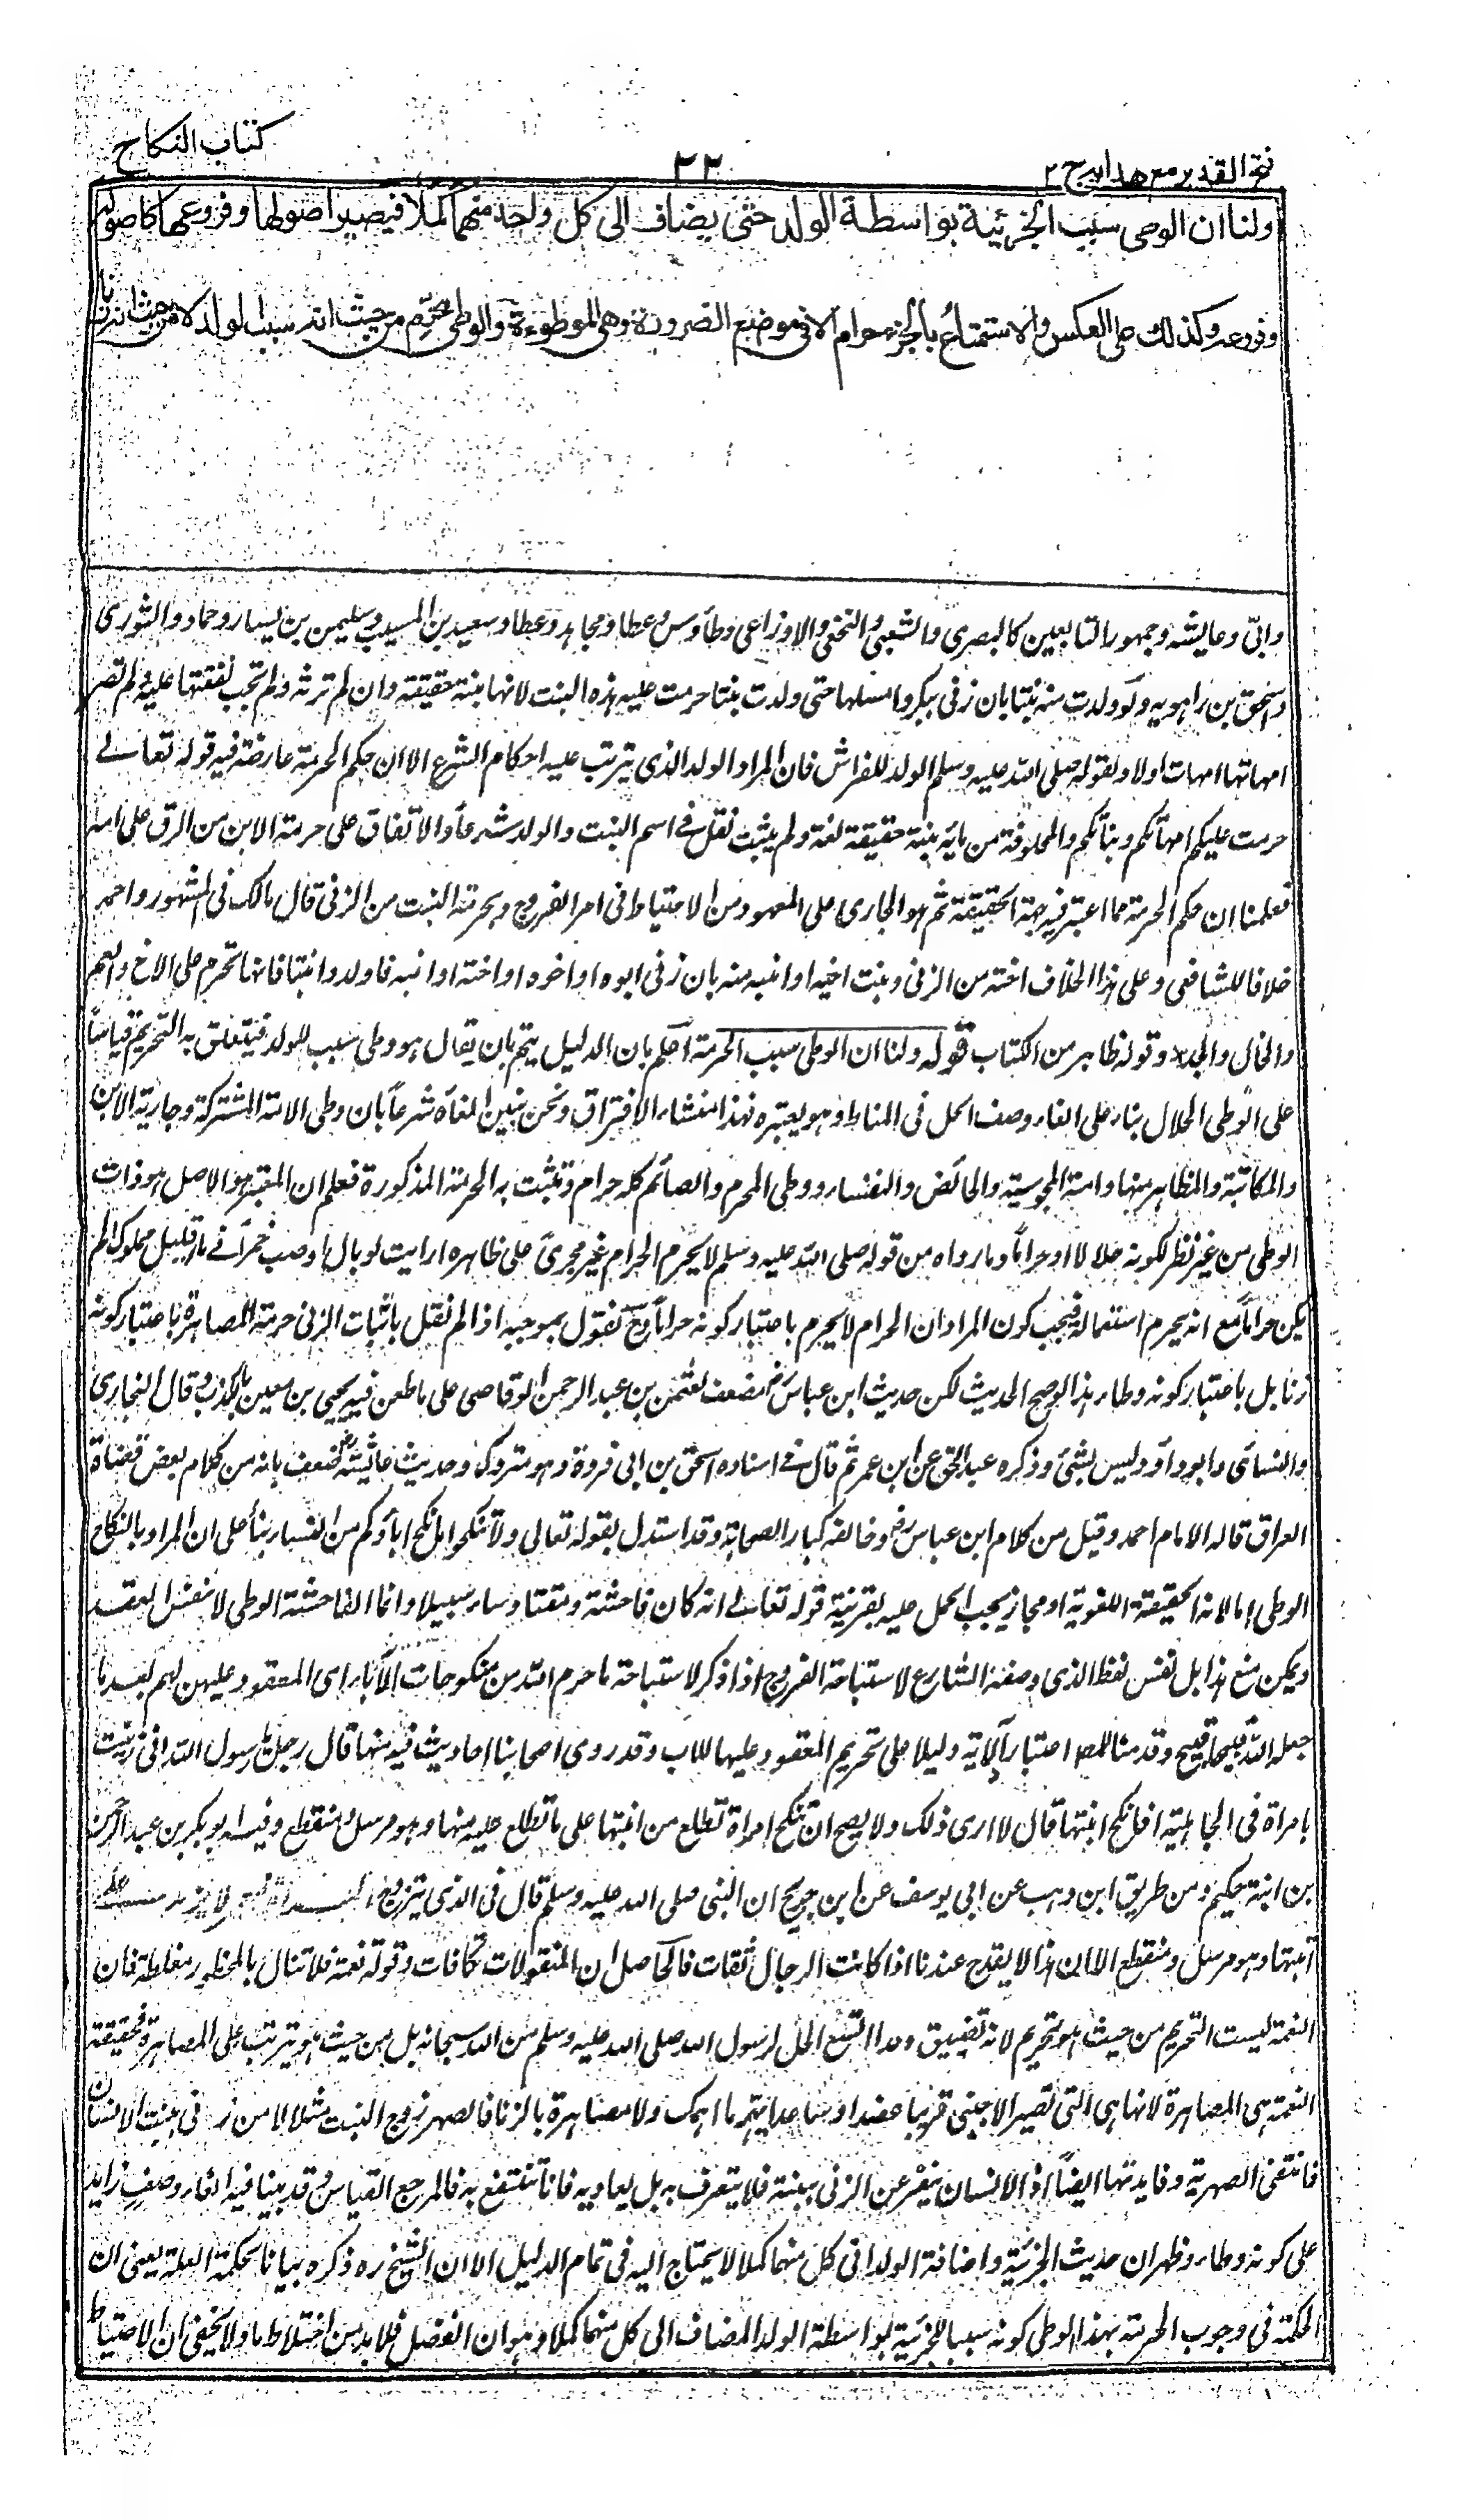 فتح القدير مع هدايه ج ٢
٢٢
كتاب النكاح
ولنا ان الوطى سبب الجزئية بواسطة الولد حتى يضاف الى كل واحد منهما كملا فيصير اصولها وفروعها كاصوله
وفروعه وكذلك على العكس والاستمتاع بالجزء حرام الا فى موضع الضرورة وهى الموطوءة والوطى محرم من حيث انه سبب الولد لا من حيث انه زنا
وابىّ وعايشه وجمهور التابعين كالبصرى والشعبى والنخعى والاوزاعى وطاوس وعطا ومجاهد وعطا وسعيد بن المسيب وسليمن بن يسار وحماد والثورى
واسحق بن راهويه ولو ولدت منه بنتا بان زنى ببكر وامسكها حتى ولدت بنتا حرمت عليه هذه البنت لانها بنته حقيقة وان لم ترثه ولم تجب نفقتها عليه ولم تصر
امهاتها امهات اولاد لقوله صلى الله عليه وسلم الولد للفراش فان المراد الولد الذى يترتب عليه احكام الشرع الا ان حكم الحرمة عارضه فيه قوله تعالے
حرمت عليكم امهاتكم وبناتكم والمخلوقة من مايه بنته حقيقة لغة ولم يثبت نقل فے اسم البنت والولد شرعاً والاتفاق على حرمة الابن من الزنى على امه
فعلمنا ان حكم الحرمة مما اعتبر فيه جهة الحقيقة ثم هو الجارى على المعهود من الاحتياط فى امر الفروج وبحرمة البنت من الزنى قال مالك فى المشهور واحمد
خلافا للشافعى وعلى هذا الخلاف اخته من الزنى وبنت اخيه او ابنه منه بان زنى ابوه او اخوه او اخته او ابنه فاولدوا بنتا فانها تحرم على الاخ والعم
والخال والجد وقوله ظاهر من الكتاب قوله ولنا ان الوطى سبب الحرمة اعلم بان الدليل يتم بان يقال هو وطى سبب للولد فيتعلق به التحريم قياساً
على الوطى الحلال بناء على الغاء وصف الحل فى المناط وهو يعتبره فهذا منشاء الافتراق ونحن نبين الغاءه شرعاً بان وطى الامة المشتركة وجارية الابن
والمكاتبة والمظاهر منها وامته المجوسية والحائض والنفساء ووطى المحرم والصائم كله حرام وتثبت به الحرمة المذكورة فعلم ان المعتبر هو الاصل هو ذات
الوطى من غير نظر لكونه حلالا او حراماً وما رواه من قوله صلى الله عليه وسلم لا يحرم الحرام غير مجرى على ظاهره ارايت لو بال او صب خمراً فے ماء قليل مملوك لم
يكن حراماً مع انه يحرم استعماله فيجب كون المراد ان الحرام لا يحرم باعتبار كونه حراماً وح نقول بموجبه اذا لم نقل باثبات الزنى حرمة المصاهرة باعتبار كونه
زنا بل باعتبار كونه وطاء هذا لو صح الحديث لكن حديث ابن عباس رض مضعف بعثمن بن عبد الرحمن الوقاصى على ما طعن فيه يحيى بن معين بالكذب وقال البخارى
والنسائى وابو داود ليس بشئ وذكره عبد الحق عن ابن عمر ثم قال فے اسناده اسحق بن ابى فروة وهو متروك وحديث عائشة رض ضعف بانه من كلام بعض قضاة
العراق قاله الامام احمد وقيل من كلام ابن عباس رض وخالفه كبار الصحابة وقد استدل بقوله تعالى ولا تنكحوا ما نكح اباؤكم من النساء بناء على ان المراد بالنكاح
الوطى اما لانه الحقيقة اللغوية او مجاز يجب الحمل عليه بقرينة قوله تعالے انه كان فاحشة ومقتا وساء سبيلا وانما الفاحشة الوطى لا نفس العقد
ويمكن منع هذا بل نفس لفظ الذى وضعه الشارع لاستباحة الفروج اذا ذكر لاستباحة ما حرم الله من منكوحات الآباء اى المعقود عليهن لهم بعد ما
جعله الله قبيحا قبيح وقدمنا للمصـ اعتبار الآية دليلا على تحريم المعقود عليها للاب وقد روى اصحابنا احاديث فيه منها قال رجل يا رسول الله انى زنيت
بامراة فى الجاهلية افانكح ابنتها قال لا ارى ذلك ولا يصح ان تنكح امراة تطلع من ابنتها على ما تطلع عليه منها وهو مرسل ومنقطع وفيه ابو بكر بن عبد الرحمن
بن ابنة حكيم ومن طريق ابن وهب عن ابى يوسف عن ابن جريج ان النبى صلى الله عليه وسلم قال فى الذى يتزوج المراة فيغمز لا يزيد على
ابنتها وهو مرسل ومنقطع الا ان هذا لا يقدح عندنا اذا كانت الرجال ثقات فالحاصل ان المنقولات تكافات وقوله نعمة فلا تنال بالمحظور مغلطة فان
النعمة ليست التحريم من حيث هو تحريم لانه تضييق ولذا اتسع الحل لرسول الله صلى الله عليه وسلم من الله سبحانه بل من حيث هو يترتب على المصاهرة فحقيقة
النعمة هى المصاهرة لانها هى التى تصير الاجنبى قريبا عضدا وساعدا يهمه ما اهمك ولا مصاهرة بالزنا فالصهر زوج البنت مثلا لا من زنى ببنت الانسان
فانتفى الصهرية وفايدتها ايضاً اذ الانسان ينفر عن الزنى ببنته فلا يتعرف به بل يعاديه فانا ننتفع به فالمرجع القياس وقد بينا فيه الغاء وصف زايد
على كونه وطاء وظهر ان حديث الجزئية واضافة الولد الى كل منهما كملا لا يحتاج اليه فى تمام الدليل الا ان الشيخ ره ذكره بيانا لحكمة العلة يعنى ان
الحكمة فى وجوب الحرمة بهذا الوطى كونه سببا للجزئية بواسطة الولد المضاف الى كل منهما كملا وهو ان انفصل فلا بد من اختلاط ما ولا يخفى ان الاحتياط